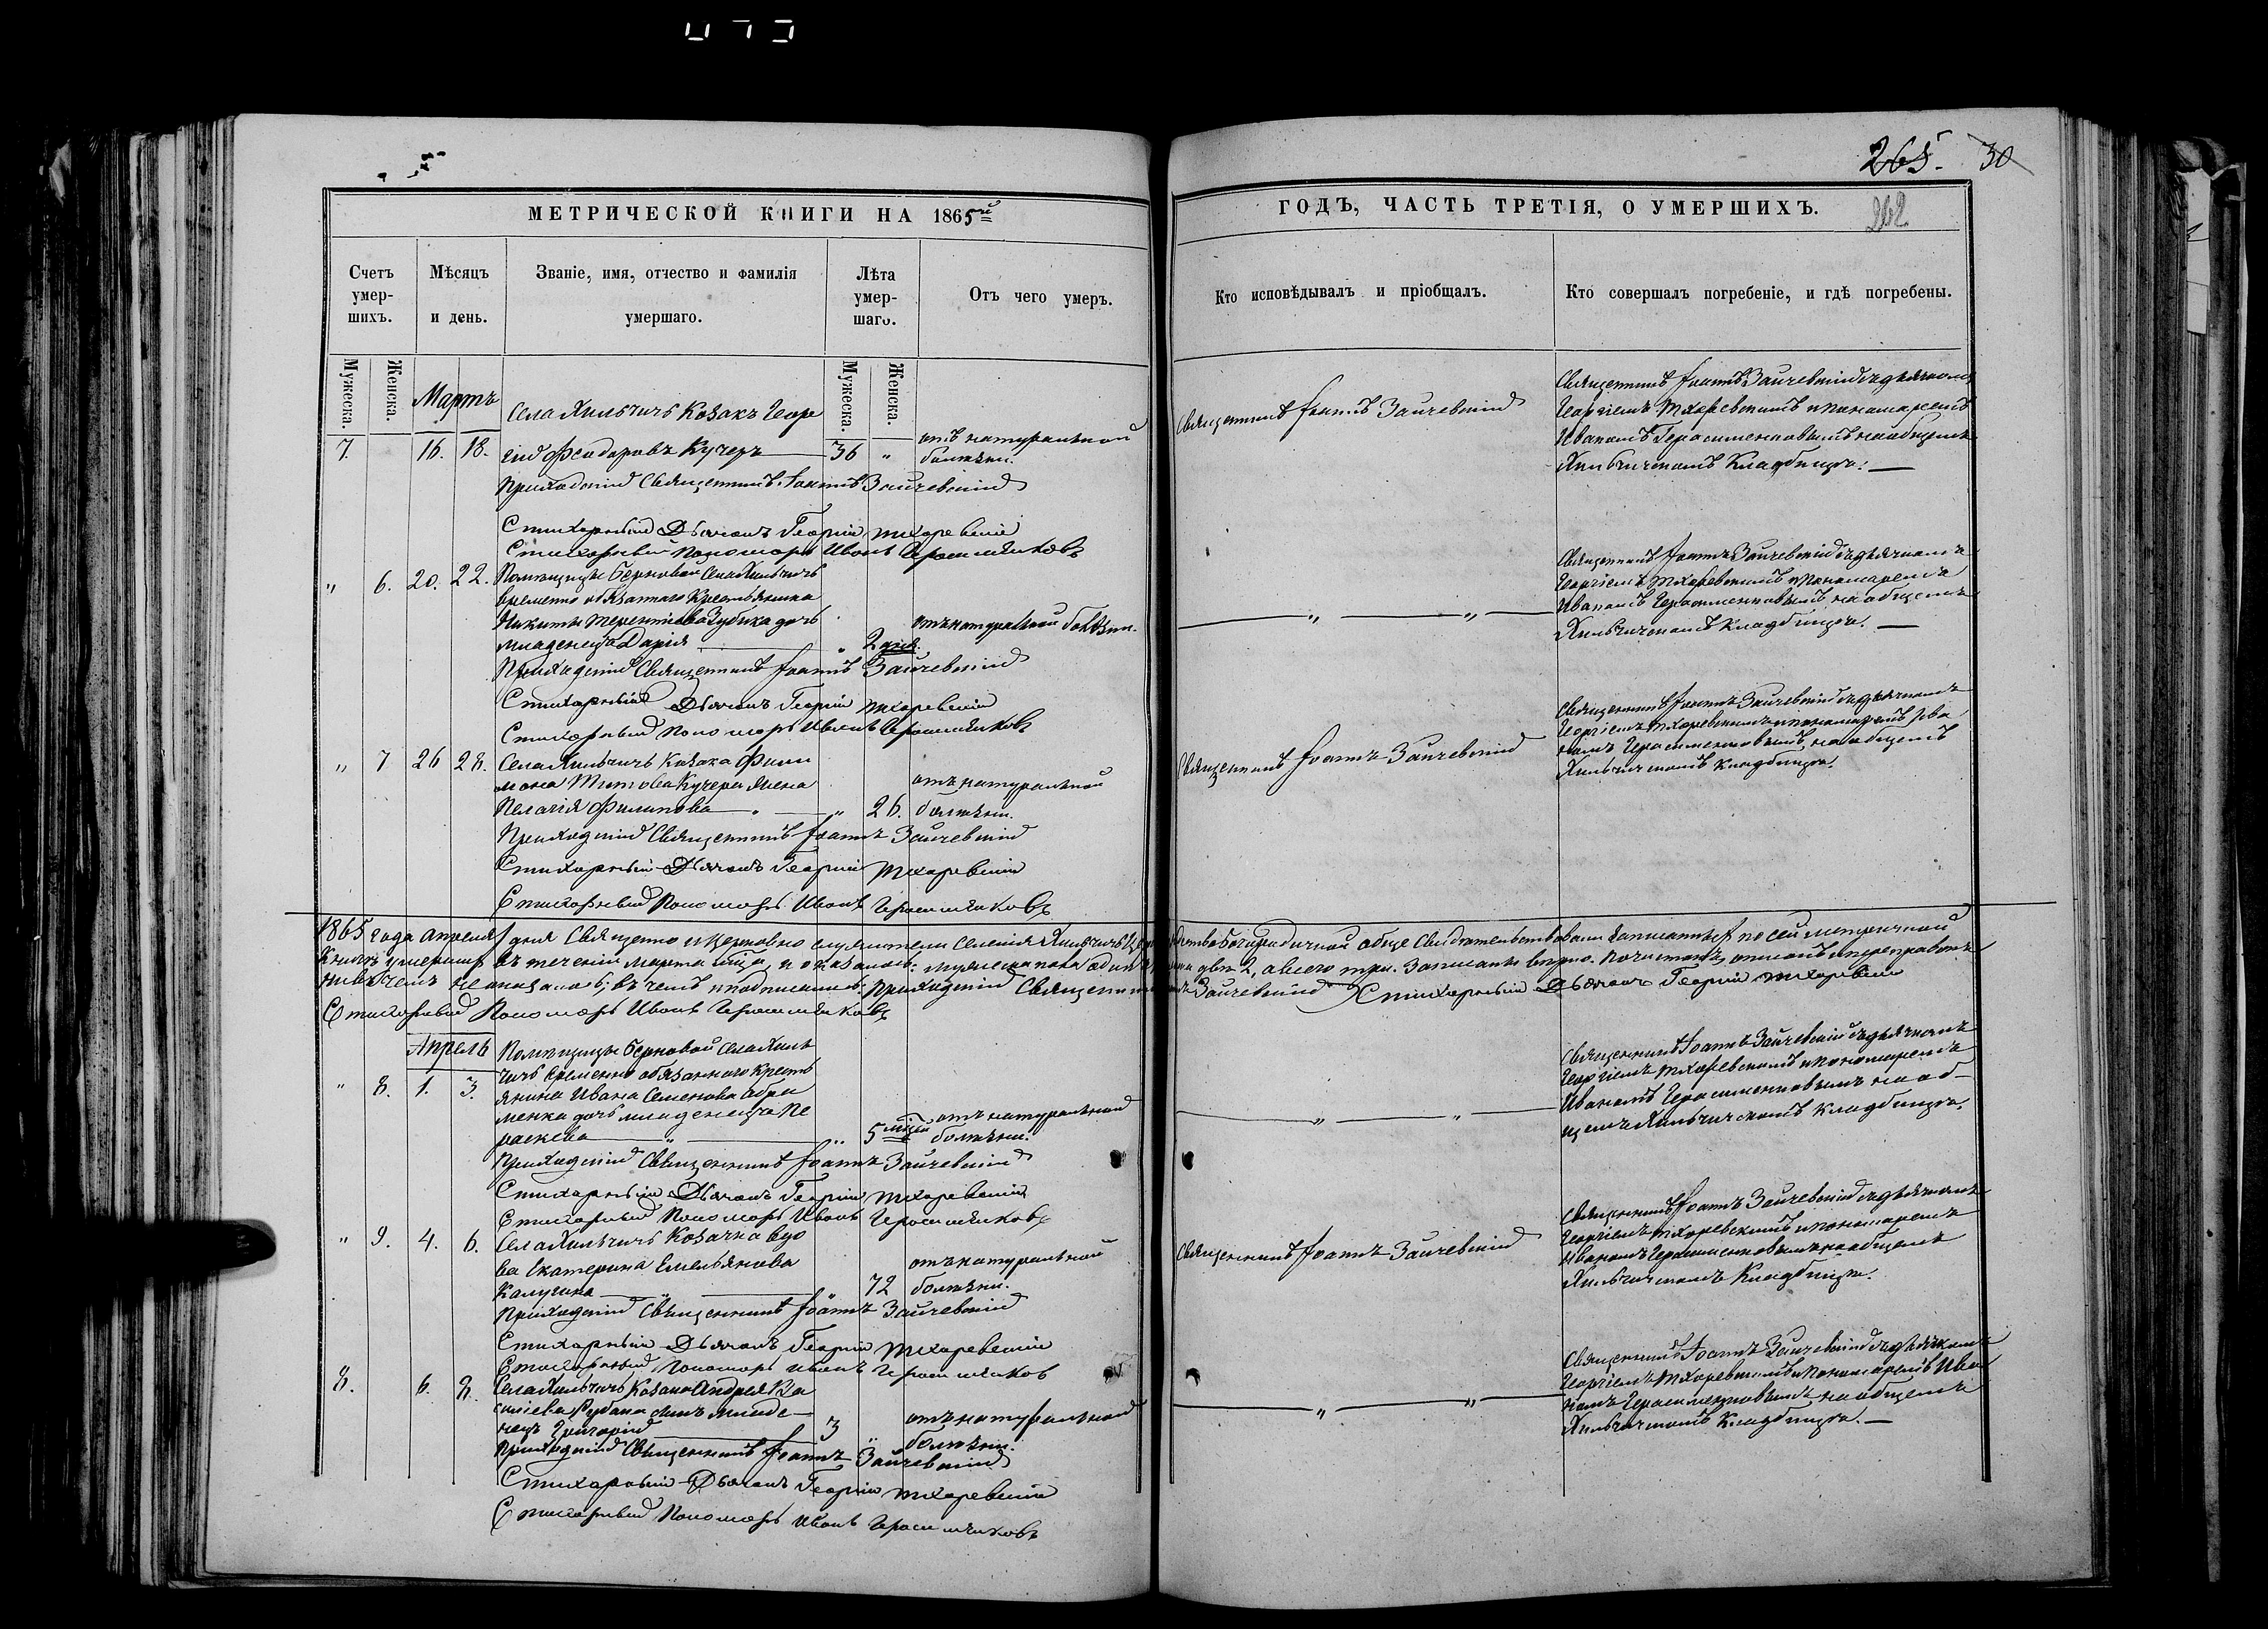 265. 30
МЕТРИЧЕСКОЙ КНИГИ НА 1865й
Счетъ умер-шихъ.
Мѣсяцъ и день.
Званіе, имя, отчество и фамилія умершаго.
Лѣта умер-шаго.
Отъ чего умеръ.
Мужеска.
Женска.
Мужеска.
Женска.
Мартъ
Села Хильчичъ Козакъ Геор
7. 16. 18. гій Феодоровъ Кучеръ 36 „ отъ натуральной
болѣзни.
Приходскій Священникъ Іоаннъ Зайчевскій
Стихарный Дьячокъ Георгій Тихоревскій
Стихарный Пономарь Иванъ Герасименковъ
„ 6. 20. 22. Помѣщицы Берновой Села Хильчичъ
временно обязаннаго Крестьянина
Никиты Терентіева Зубика дочь
младенецъ Дарія „ 2 дней. отъ натуральной болѣзни.
Приходскій Священникъ Іоаннъ Зайчевскій
Стихарный Дьячокъ Георгій Тихоревскій
Стихарный Пономарь Иванъ Герасименковъ
„ 7 26 28. Села Хильчичъ Козака Фили
мона Титова Кучера жена
Пелагія Филипова „ 26. отъ натуральной
болѣзни.
Приходскій Священникъ Іоаннъ Зайчевскій
Стихарный Дьячокъ Георгій Тихоревскій
Стихарный Пономарь Иванъ Герасименковъ
1865 года Апреля 1 дня Священно и церковно служители Селенія Хильчичъ
Книгѣ умершихъ въ теченіи марта мѣсяца, и оказалось: мужеска пола одинъ
Приходскій Священникъ
Стихарный Пономарь Иванъ Герасименковъ
Апрель
Помѣщицы Берновой Села Хиль
„ 8. 1. 3. чичъ временно обязаннаго Кресть
янина Ивана Семенова Абра
менка дочь младенецъ Па
раскева „ 5 мѣсяц. отъ натуральной
болѣзни.
Приходскій Священникъ Іоаннъ Зайчевскій
Стихарный Дьячокъ Георгій Тихоревскій
Стихарный Пономарь Иванъ Герасименковъ
„ 9. 4. 6. Села Хильчичъ Козачка вдо
ва Екатерина Емельянова
Калугина „ 72 отъ натуральной
болѣзни.
Приходскій Священникъ Іоаннъ Зайчевскій
Стихарный Дьячокъ Георгій Тихоревскій
Стихарный Пономарь Иванъ Герасименковъ
8. 6. 8. Села Хильчичъ Козака Андрея Ва
силіева Рубана сынъ младе
нецъ Григорій 3 „ отъ натуральной
болѣзни.
Приходскій Священникъ Іоаннъ Зайчевскій
Стихарный Дьячокъ Георгій Тихоревскій
Стихарный Пономарь Иванъ Герасименковъ
ГОДЪ, ЧАСТЬ ТРЕТІЯ, О УМЕРШИХЪ. 262
Кто исповѣдывалъ и пріобщалъ.
Кто совершалъ погребеніе, и гдѣ погребены.
Священникъ Іоаннъ Зайчевскій
Священникъ Іоаннъ Зайчевскій съ дьячкомъ
Георгіемъ Тихоревскимъ и пономаремъ
Иваномъ Герасименковымъ на общемъ
Хильчичскомъ Кладбищѣ.
„ „
Священникъ Іоаннъ Зайчевскій съ дьячкомъ
Георгіемъ Тихоревскимъ и пономаремъ
Иваномъ Герасименковымъ на общемъ
Хильчичскомъ Кладбищѣ.
Священникъ Іоаннъ Зайчевскій
Священникъ Іоаннъ Зайчевскій съ дьячкомъ
Георгіемъ Тихоревскимъ и пономаремъ Ива
номъ Герасименковымъ, на общемъ
Хильчичскомъ Кладбищѣ.
обще Свидѣтельствовали записанныхъ по сей метричной
двѣ 2, а всего три. Записаны вѣрно.
Зайчевскій Стихарный Дьячокъ Георгій Тихоревскій
„ „
Священникъ Іоаннъ Зайчевскій съ дьячкомъ
Георгіемъ Тихоревскимъ и пономаремъ
Иваномъ Герасименковымъ на об-
щемъ Хильчичскомъ Кладбищѣ.
Священникъ Іоаннъ Зайчевскій
Священникъ Іоаннъ Зайчевскій съ дьячкомъ
Георгіемъ Тихоревскимъ и пономаремъ
Иваномъ Герасименковымъ на общемъ
Хильчичскомъ Кладбищѣ.
„ „
Священникъ Іоаннъ Зайчевскій съ дьячкомъ
Георгіемъ Тихоревскимъ и пономаремъ Ива
номъ Герасименковымъ на общемъ
Хильчичскомъ Кладбищѣ.